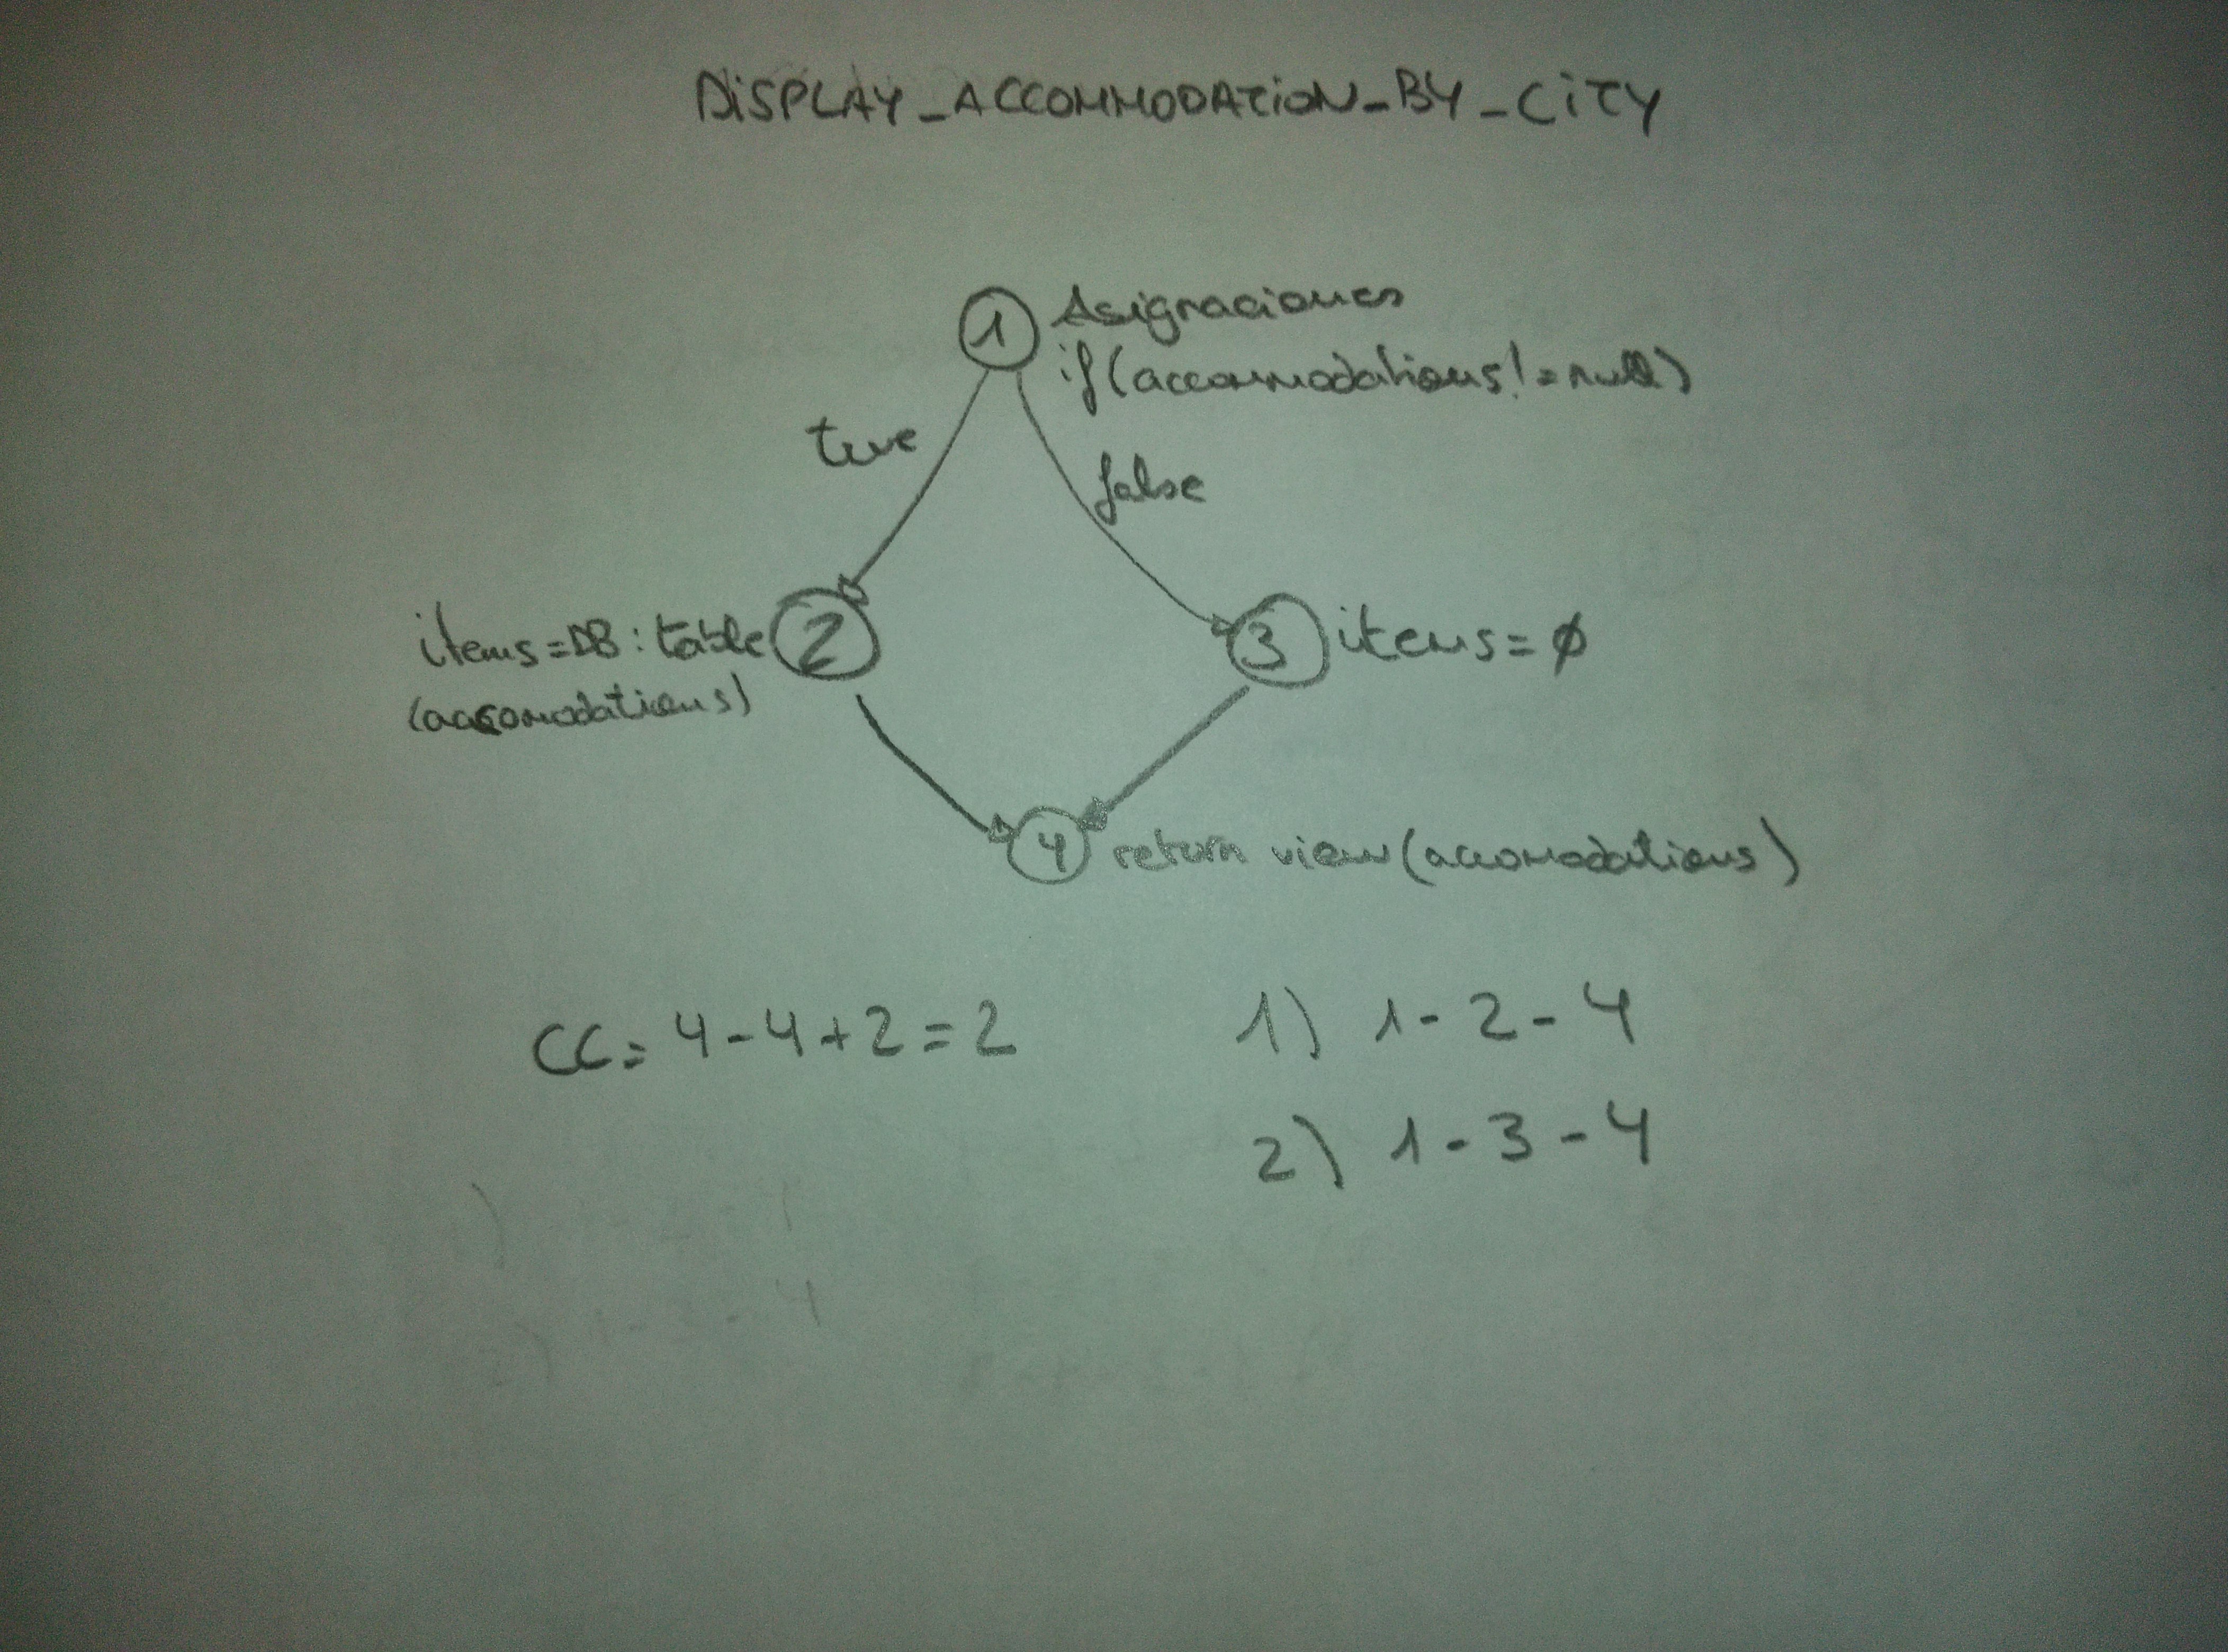 DISPLAY_ACCOMMODATION_BY_CITY
1 Asignaciones
if(accommodations!=null)
true
false
items=DB:table 2
(accomodations)
3 items=ϕ
4 return view(accomodations)
CC=4-4+2=2
1) 1-2-4
2) 1-3-4